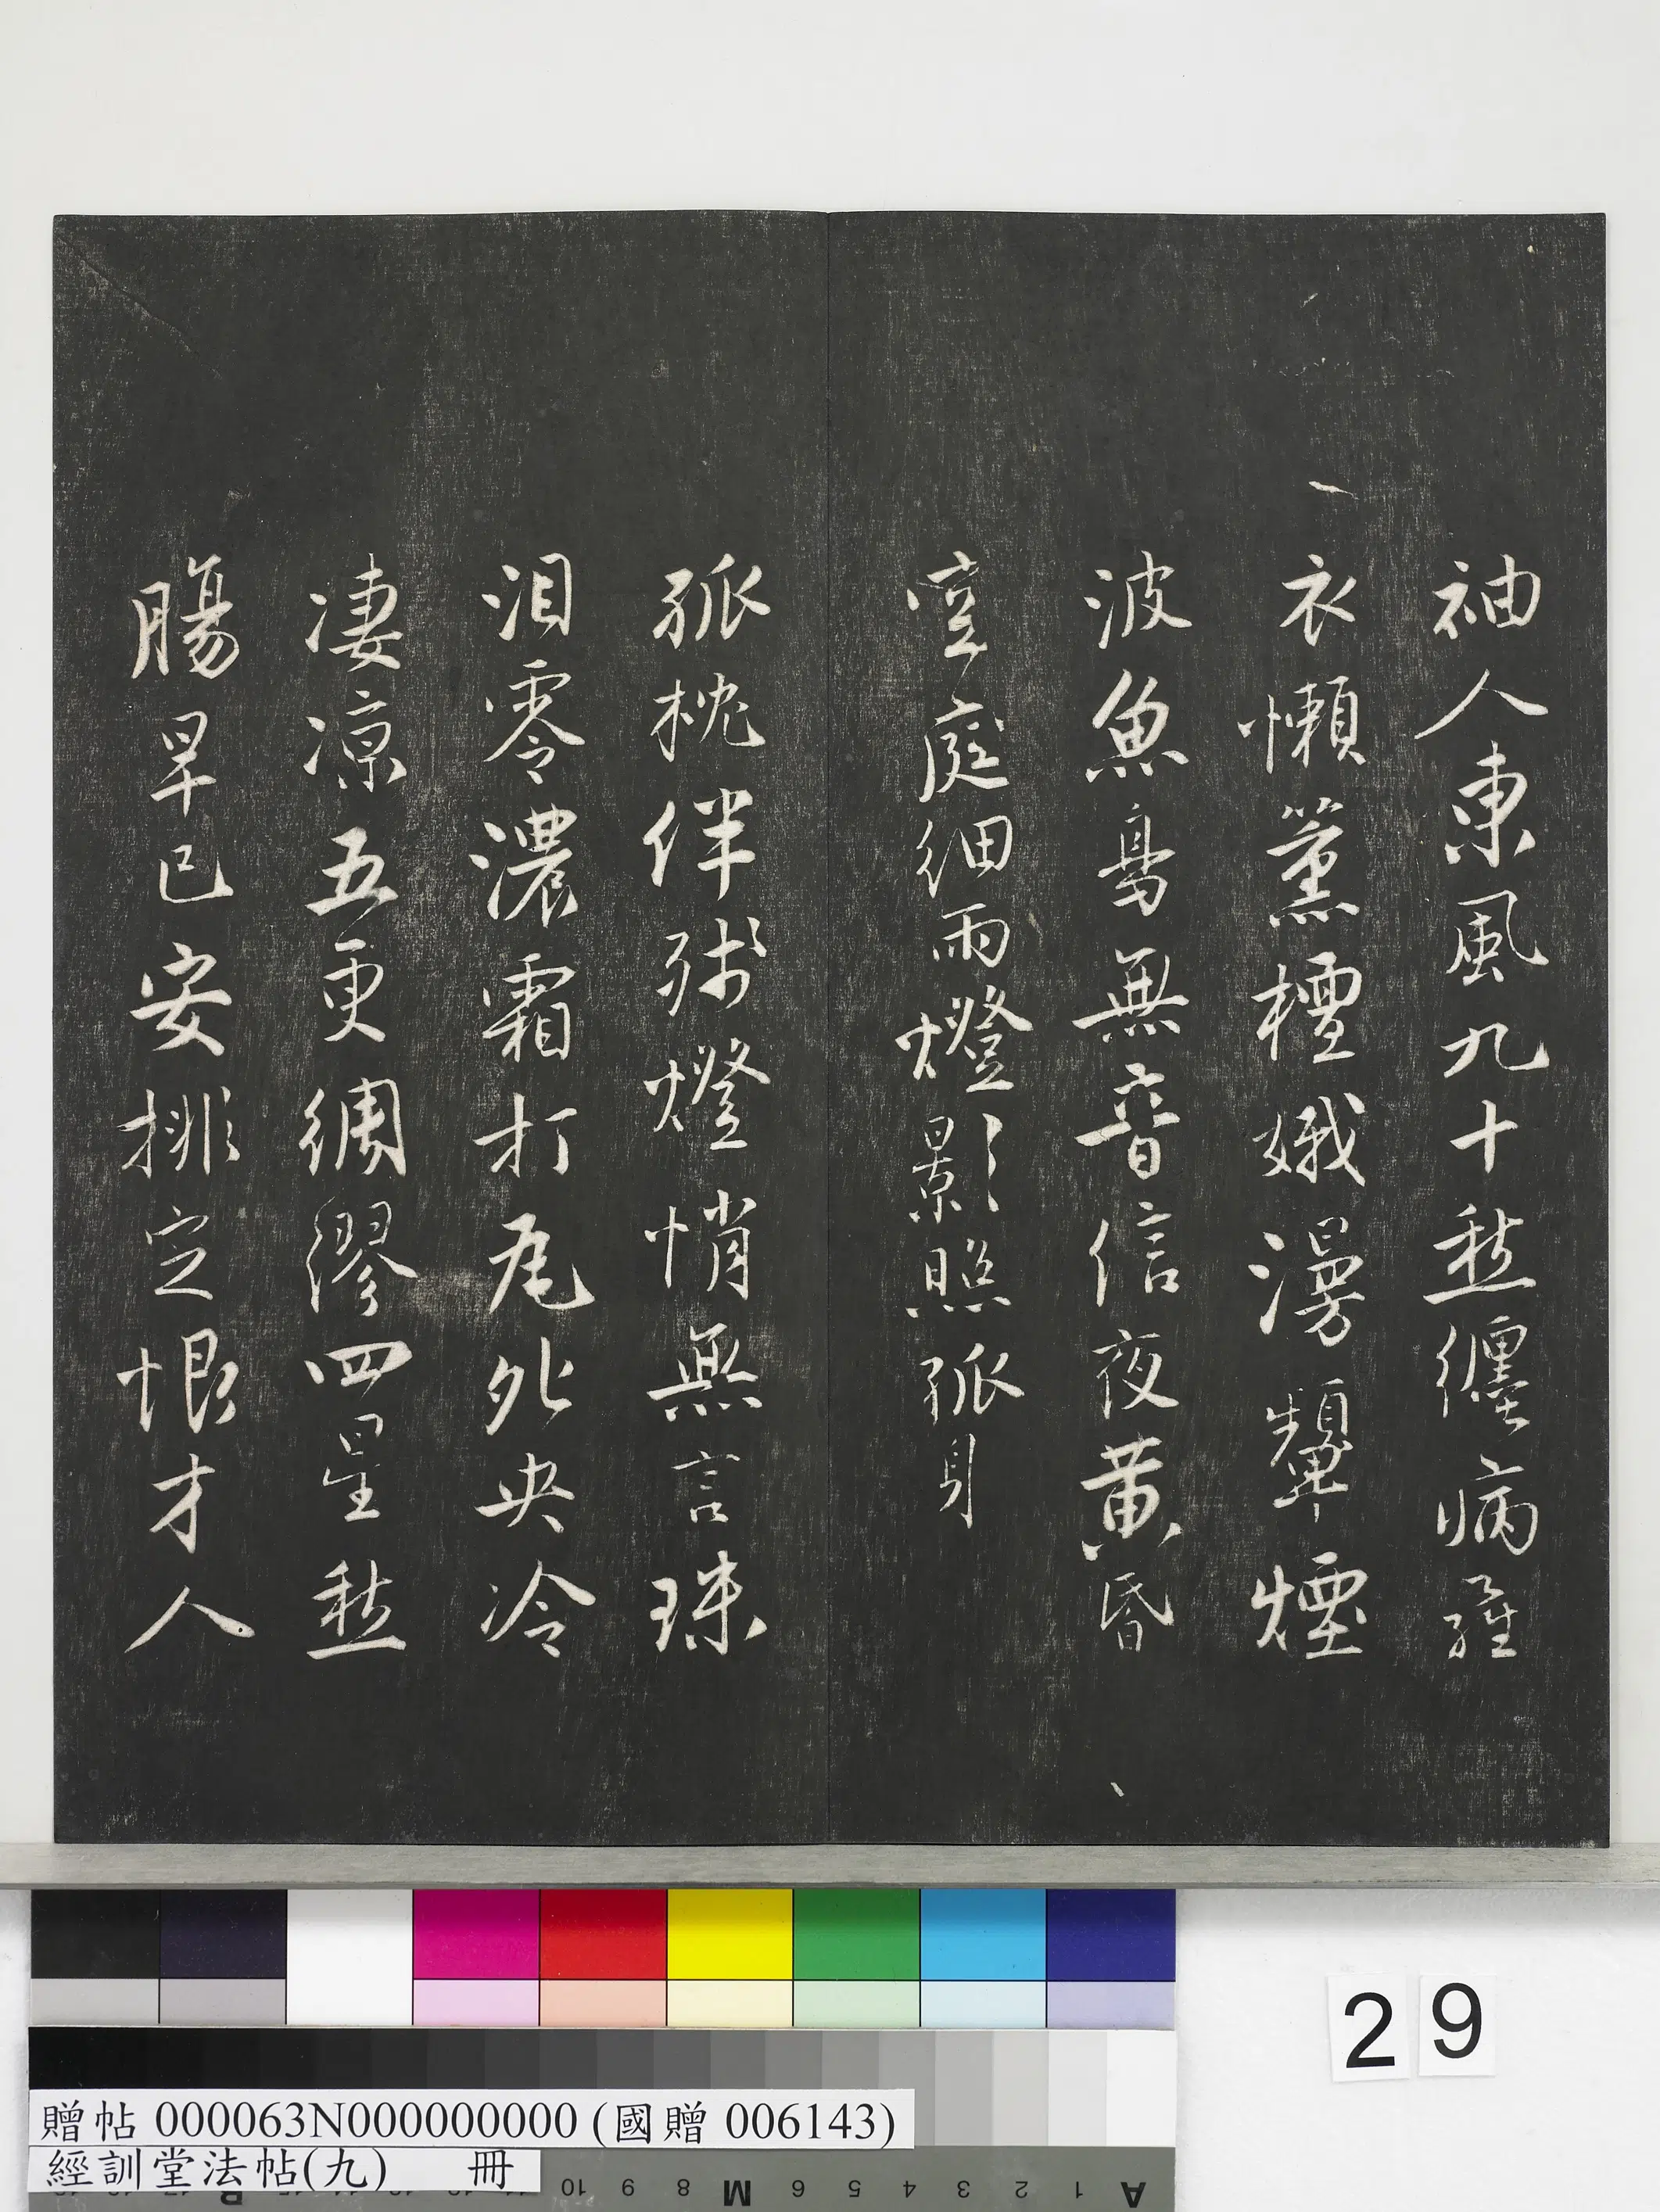 袖人東風九十愁纏病羅
衣懶薰檀娥漫顰煙
波魚鳥無音信夜黄昏
空庭細雨燈影照孤身
孤枕伴殘燈悄無言珠
泪零濃霜打瓦死央冷
凄凉五更綢繆四星愁
腸早已安排定恨才人
29
贈帖 000063N000000000 (國贈 006143)
經訓堂法帖(九) 冊